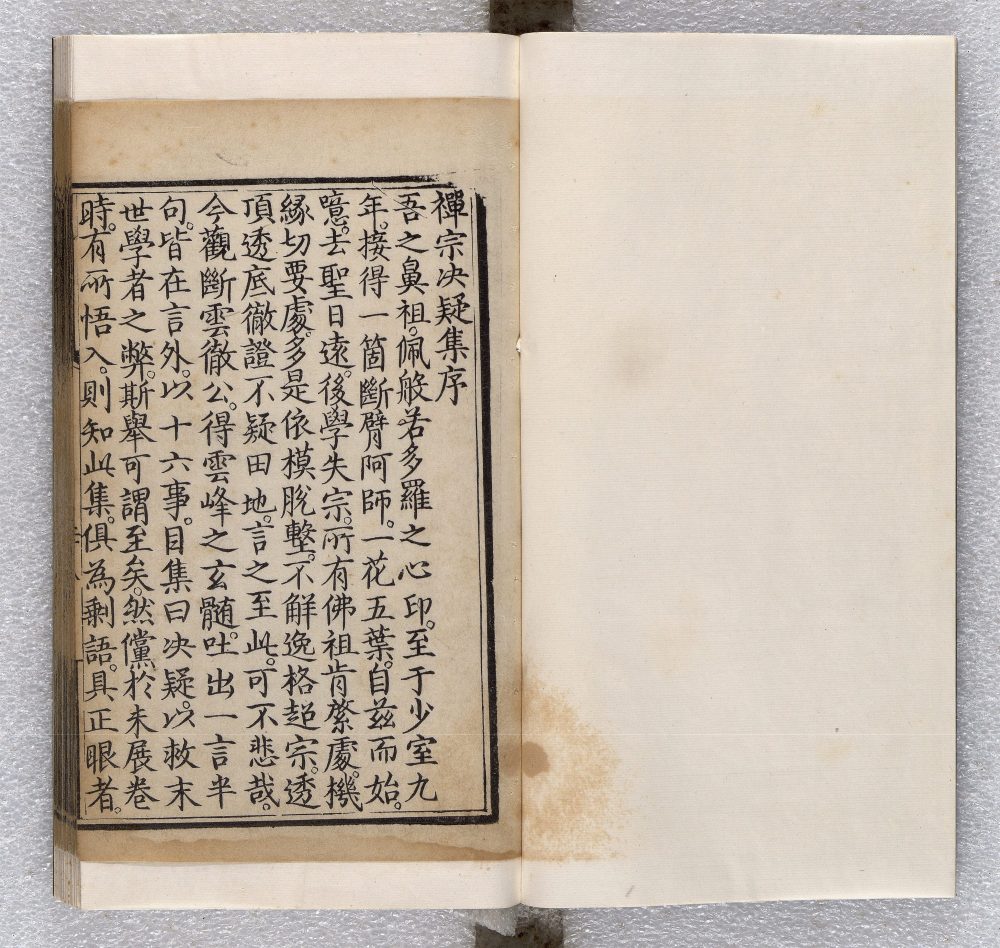 禪宗决疑集序
吾之鼻祖。佩般若多羅之心印。至于少室九
年。接得一箇斷臂阿師。一花五葉。自茲而始。
噫。去聖日遠。後學失宗。所有佛祖肯綮處。機
緣切要處。多是依模脫墼。不解逸格超宗。透
頂透底徹證不疑田地。言之至此。可不悲哉。
今觀斷雲徹公。得雲峰之玄髓。吐出一言半
句。皆在言外。以十六事。目集曰决疑。以救末
世學者之弊。斯舉可謂至矣。然儻於未展卷
時。有所悟入。則知此集。俱為剩語。具正眼者。